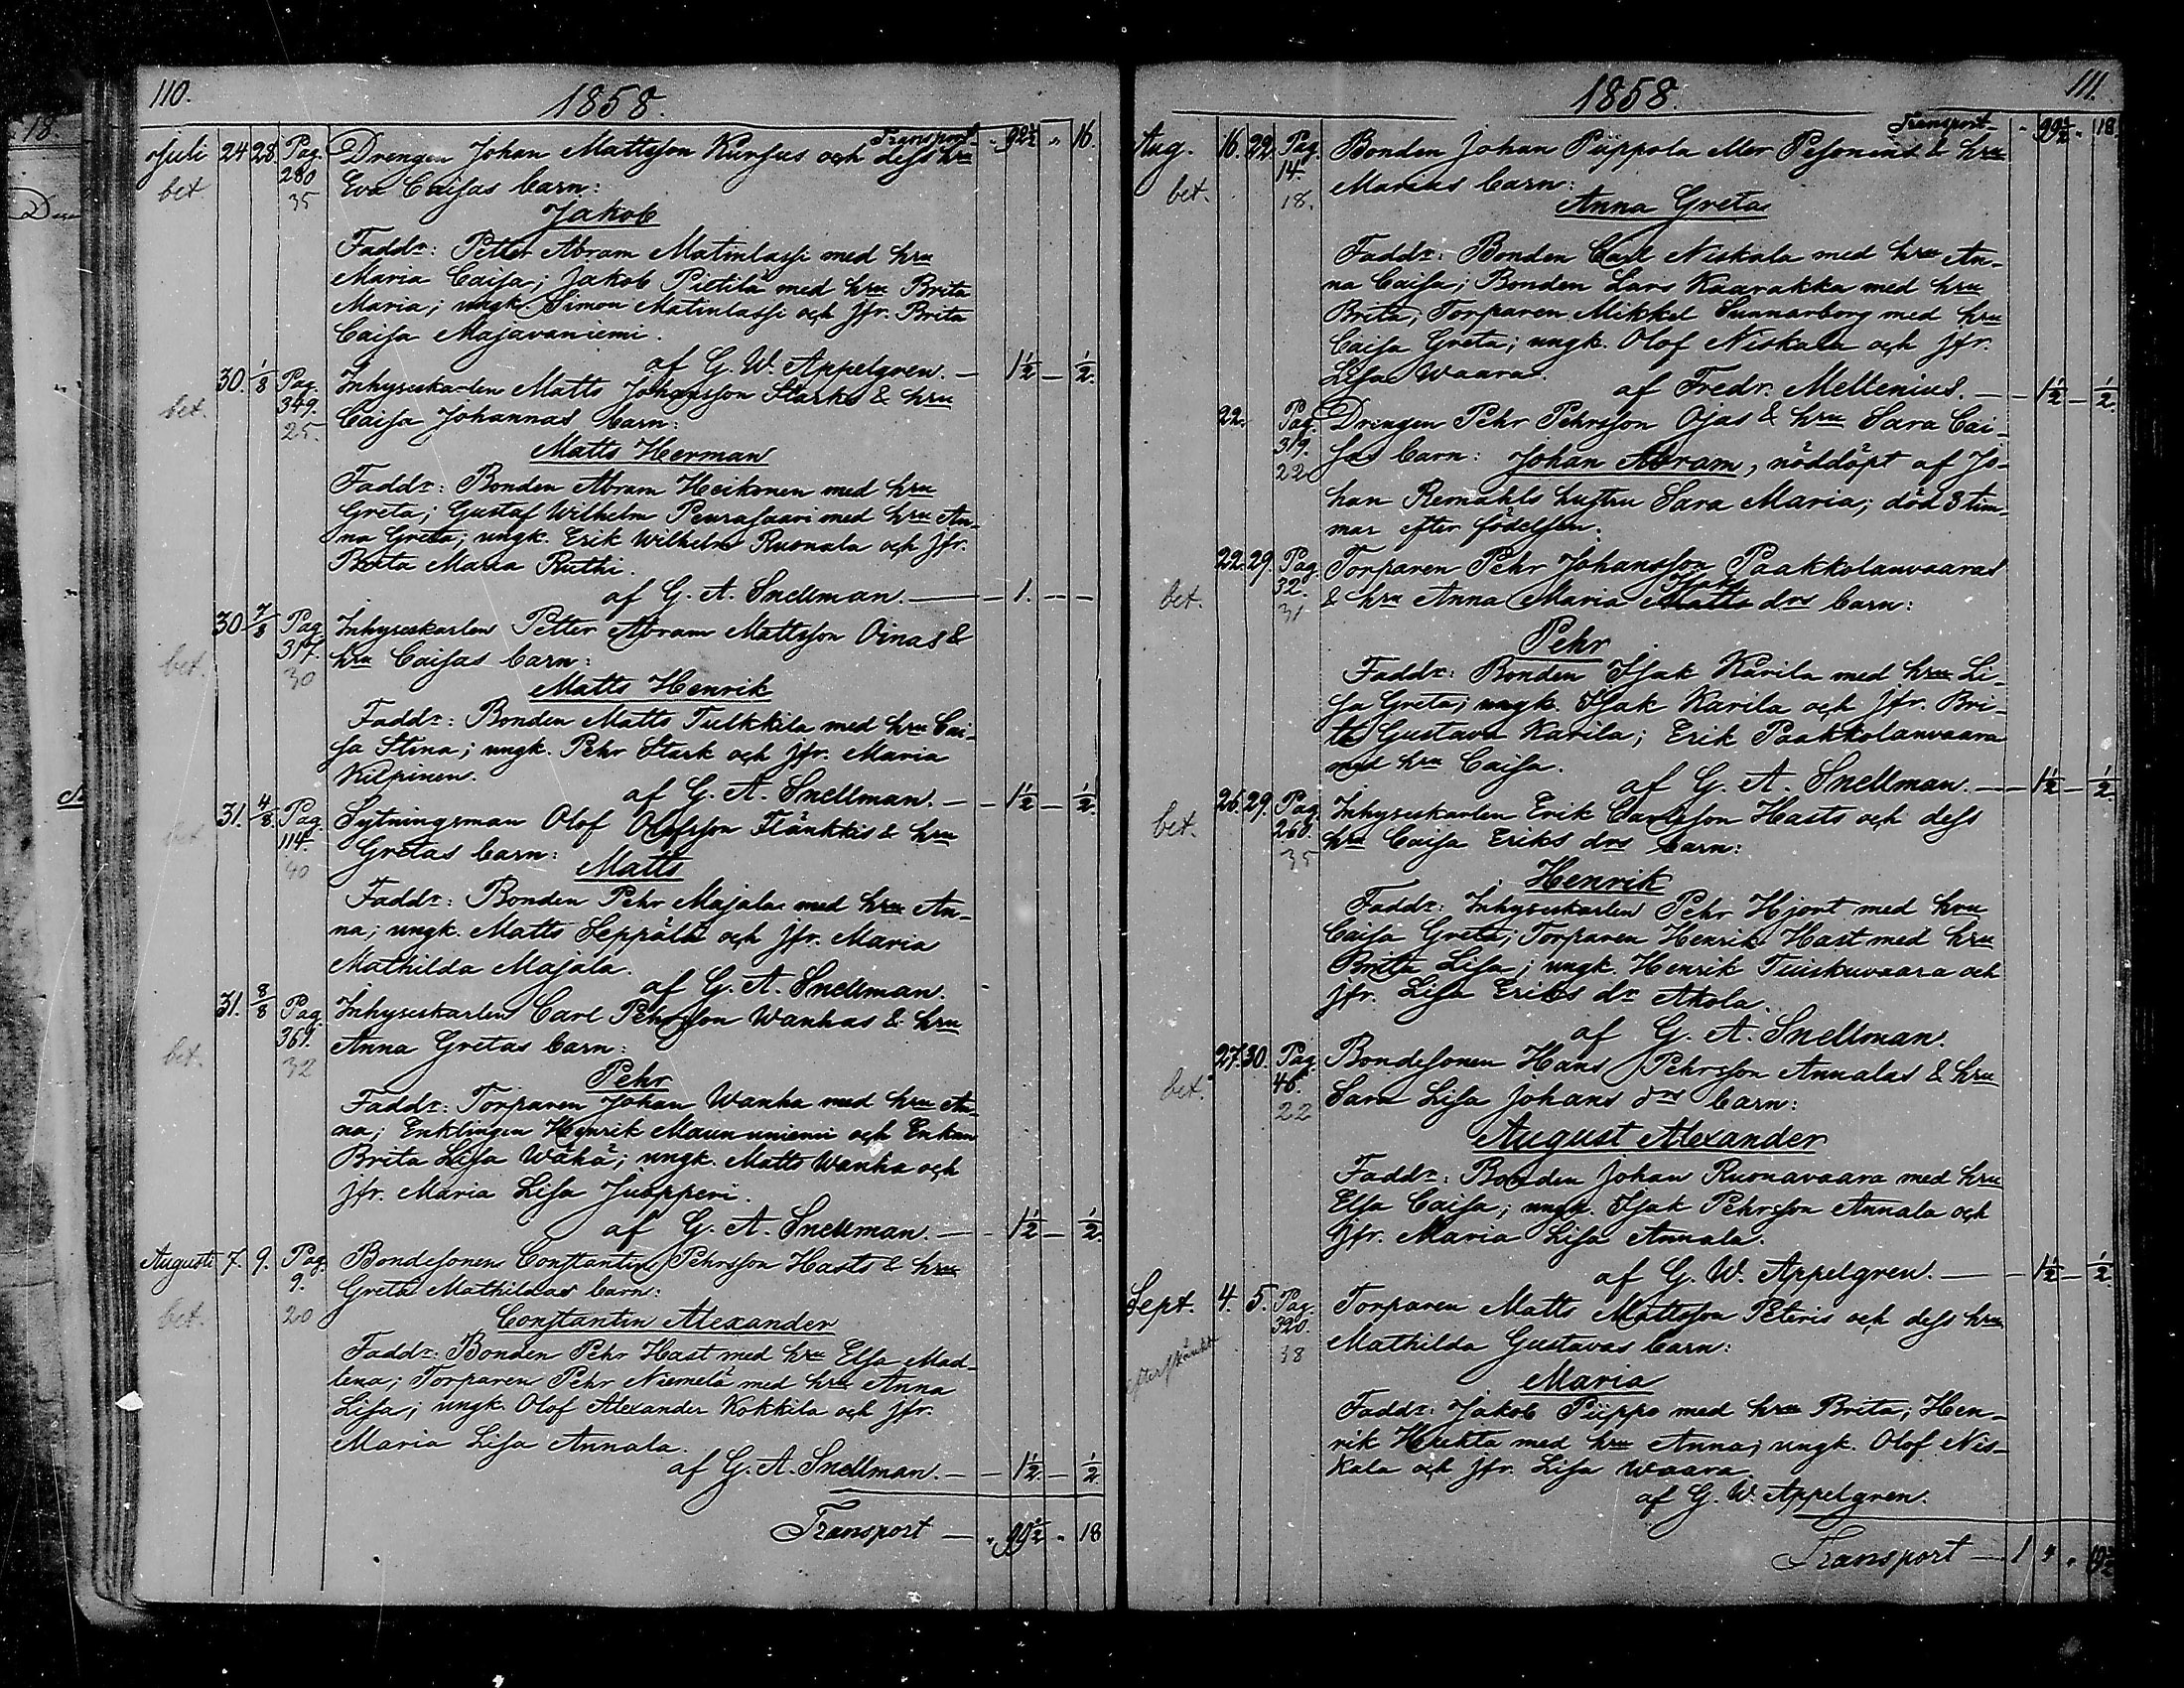 110.
1858.
Transport - " 92½ " 16.
Juli 24 28. Pag. Drengen Johan Mattsson Kursus och dess hru
bet. 280 Eva Caisas barn:
35
Jakob
Faddr: Petter Abram Matinlassi med hru
Maria Caisa; Jakob Pietilä med hru Brita
Maria; ungk. Simon Matinlassi och Jfr. Brita
Caisa Majavaniemi.
af G. W. Appelgren. — 1½ — ½.
30. 1/8 Pag. Inhyseskarlen Matts Johansson Starks & hru
bet. 349. Caisa Johannas barn:
25.
Matts Herman
Faddr: Bonden Abram Heikonen med hru
Greta; Gustaf Wilhelm Peurasaari med hru An-
na Greta; ungk. Erik Wilhelm Ruonala och Jfr.
Brita Maria Ruthi.
af G. A. Snellman. — 1. — —
30 7/8 Pag. Inhyseskarlen Petter Abram Mattsson Oinas &
bet. 317. hru Caisas barn:
30
Matts Henrik
Faddr: Bonden Matts Tulkkila med hru Cai-
sa Stina; ungk. Pehr Stark och Jfr. Maria
Kilpinen.
af G. A. Snellman. — 1½ — ½.
31. 4/8. Pag. Sytningsman Olof Olofsson Flänkkis & hru
bet 114. Gretas barn:
40
Matts
Faddr: Bonden Pehr Majala med hru An-
na; ungk. Matts Seppälä och Jfr. Maria
Mathilda Majala.
af G. A. Snellman.
31. 8/8 Pag. Inhyseskarlen Carl Pehrsson Wanhas & hru
bet. 369. Anna Gretas barn:
32
Pehr
Faddr: Torparen Johan Wanha med hru An-
na; Enklingen Henrik Maununiemi och Enkan
Brita Lisa Wähä; ungk. Matts Wanha och
Jfr. Maria Lisa Juopperi.
af G. A. Snellman. — 1½ — ½.
Augusti 7. 9. Pag. Bondesonen Constantin Pehrsson Hasts & hru
9. Greta Mathildas barn:
bet. 20
Constantin Alexander
Faddr: Bonden Pehr Hast med hru Elsa Mad-
lena; Torparen Pehr Niemelä med hru Anna
Lisa; ungk. Olof Alexander Kokkila och Jfr.
Maria Lisa Annala.
af G. A. Snellman. — 1½ — ½.
Transport — " " 18
111.
1858.
Transport - " " 18
Aug. 16. 22. Pag. Bonden Johan Piippola eller Pesonens & hru
14. Marias barn:
bet. 18.
Anna Greta
Faddr: Bonden Carl Niskala med hru An-
na Caisa; Bonden Lars Kaarakka med hru
Brita; Torparen Mikkel Sunnarborg med hru
Caisa Greta; ungk. Olof Niskala och Jfr.
Lisa Waara.
af Fredr. Mellenius. — 1½ — ½.
22. Pag. Drengen Pehr Pehrsson Ojas & hru Sara Cai-
319. sas barn: Johan Abram, nöddöpt af Jo-
22 han Remahls hustru Sara Maria; död 3 tim-
mar efter födelsen.
22. 29. Pag. Torparen Pehr Johansson Paakkolanvaaras
bet. 32. & hru Anna Maria Matts drs barn:
31
Pehr
Faddr: Bonden Isak Karila med hru Li-
sa Greta; ungk. Isak Karila och Jfr. Bri-
ta Gustava Karila; Erik Paakkolanvaara
med hru Caisa.
af G. A. Snellman. — 1½ — ½.
26. 29. Pag. Inhyseskarlen Erik Carlsson Hasts och dess
bet. 268. hru Caisa Eriks drs barn:
35
Henrik
Faddr: Inhyseskarlen Pehr Hjort med hru
Caisa Greta; Torparen Henrik Hast med hru
Brita Lisa; ungk. Henrik Tuiskuvaara och
Jfr. Lisa Eriks dr Akola.
af G. A. Snellman.
27. 30. Pag. Bondesonen Hans Pehrsson Annalas & hru
bet. 46. Sara Lisa Johans drs barn:
22
August Alexander
Faddr: Bonden Johan Ruonavaara med hru
Elsa Caisa; ungk. Isak Pehrsson Annala och
Jfr. Maria Lisa Annala.
af G. W. Appelgren. — 1½ — ½.
Sept. 4. 5. Pag. Torparen Matts Mattsson Peteris och dess hru
320. Mathilda Gustavas barn:
efterskänkt 38
Maria
Faddr: Jakob Piippo med hru Brita; Hen-
rik Heikka med hru Anna; ungk. Olof Nis-
kala och Jfr. Lisa Waara.
af G. W. Appelgren.
Transport — 1